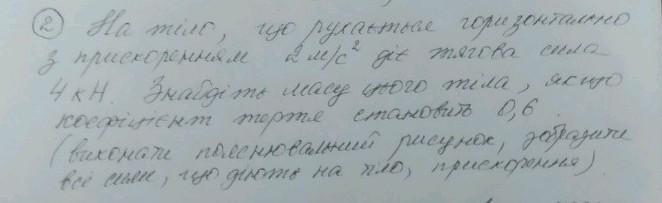 ② На тіло, що рухається горизонтально
з прискоренням 2 м/с² діє тягова сила
4 кН. Знайдіть масу цього тіла, якщо
коефіцієнт тертя становить 0,6
(виконати пояснювальний рисунок, зобразити
всі сили, що діють на тіло, прискорення)